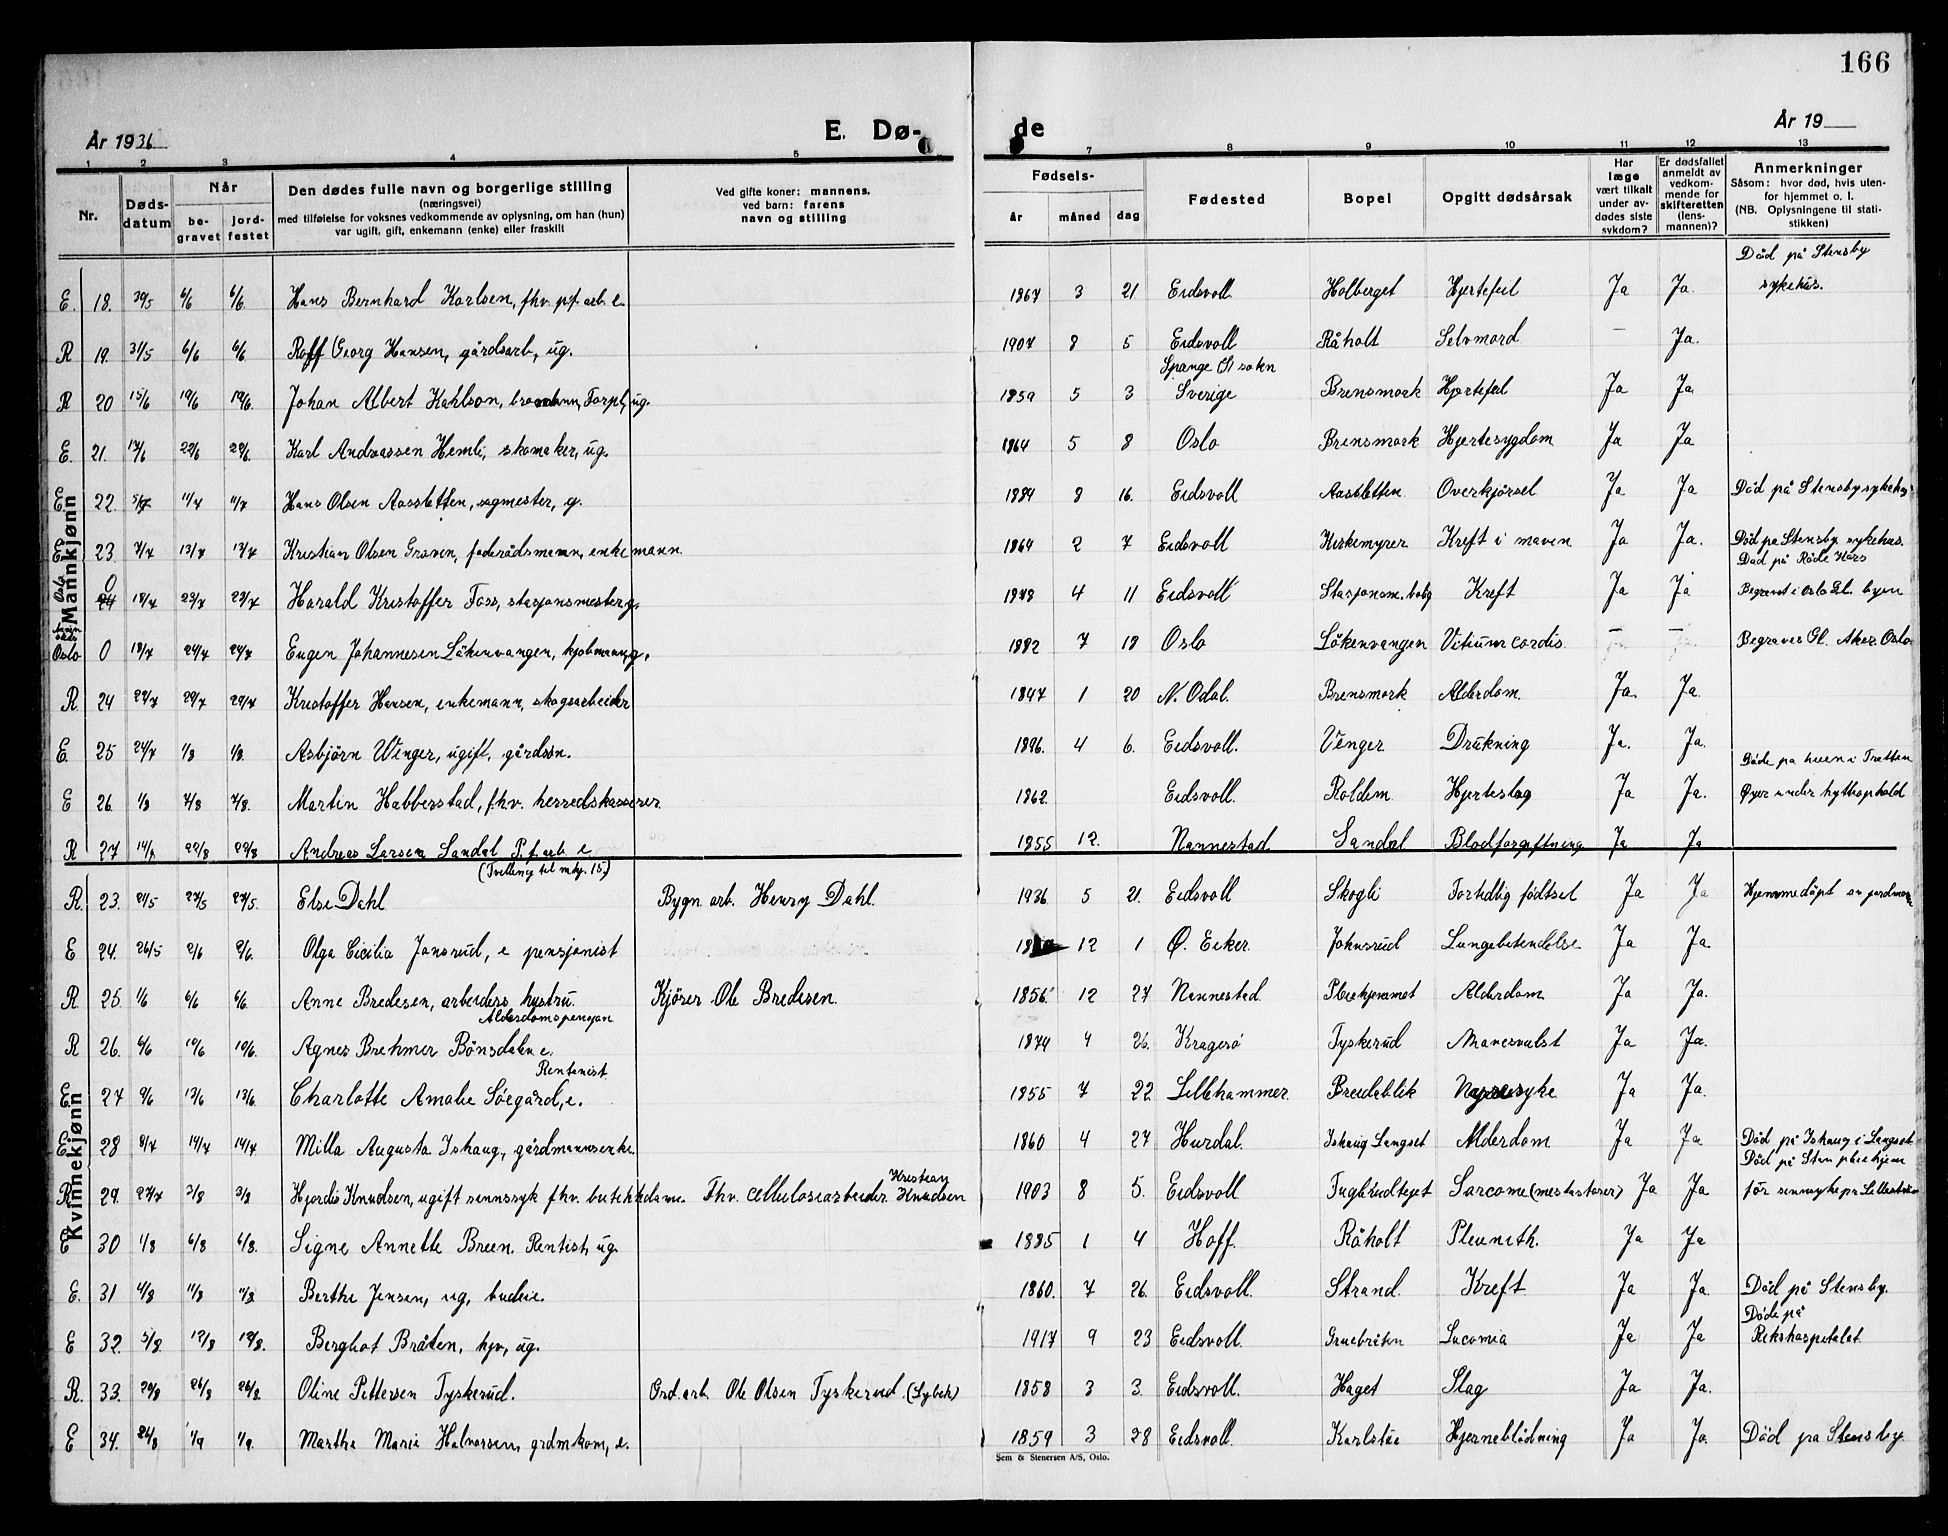 166
År 1936
E. Dø-
de
År 19
1 2 3 4 5 7 8 9 10 11 12 13
Nr.
Døds-
datum
Når
be-
gravet
jord-
festet
Den dødes fulle navn og borgerlige stilling
(næringsvei)
med tilføielse for voksnes vedkommende av oplysning, om han (hun)
var ugift, gift, enkemann (enke) eller fraskilt
Ved gifte koner: mannens.
ved barn: farens
navn og stilling
Fødsels-
år måned dag
Fødested
Bopel
Opgitt dødsårsak
Har
læge
vært tilkalt
under av-
dødes siste
sykdom?
Er dødsfallet
anmeldt av
vedkom-
mende for
skifteretten
(lens-
mannen)?
Anmerkninger
Såsom: hvor død, hvis uten-
for hjemmet o. l.
(NB. Oplysningene til stati-
stikken)
Mannkjønn
E. 18. 30/5 6/6 6/6. Hans Bernhard Karlsen, fhv. p.f. arb. e. 1867 3 21 Eidsvoll Holberget Hjertefeil Ja Ja. Död på Stensby sykehus.
R 19. 31/5 6/6 6/6 Rolf Georg Hansen, gårdsarb, ug. 1907 8 5 Eidsvoll Råholt Selvmord — Ja.
R 20 15/6 19/6 19/6. Johan Albert Kahlson, Forpl, ug. 1859 5 3 Spange (S) soken Sverige Brensmork Hjertefeil Ja Ja
E. 21. 22/6 22/6. Karl Andreassen Hemli, skomaker, ug. 1864 5 8 Oslo Brensmork Hjertesygdom Ja Ja
E 22. 5/7 11/7 11/7 Hans Olsen Aassletten, sagmester, g. 1884 8 16. Eidsvoll Aassletten Overkjörsel Ja Ja Död på Stensby sykehus
E 23. 7/7 13/7 13/7 Kristian Olsen Graven, föderådsmann, enkemann 1864 2 7 Eidsvoll Kirkemyrer Kreft i maven Ja Ja. Död på Stensby sykehus.
Oslo 0 24 18/7 23/7 23/7 Harald Kristoffer Foss, stasjonsmester g. 1878 4 11 Eidsvoll Stasjonsm. bolig Kreft Ja Ja Död på Röde Kors Begravet i Oslo
Oslo 0 18/7 24/7 24/7 Eugen Johannesen Lökenvangen, kjöbmann, g. 1882 7 18 Oslo Lökenvangen Vitium cordis — — Begraves Gl. Aker Oslo
R 24 22/7 29/7 29/7 Kristoffer Hansen, enkemann, skogsarbeider 1847 1 20 N. Odal. Brensmork Alderdom. Ja. Ja.
E. 25 24/7 1/8 1/8. Asbjörn Wenger, ugift, gårdssön. 1896. 4 6. Eidsvoll. Venger Drukning Ja. Ja.
E 26. 1/8 7/8 7/8. Martin Habberstad, fhv. herredskasserer 1862. Eidsvoll. Roldem Hjerteslag Ja Ja. Döde på turen i Tretten Öyer under hytteophold
R 27 22/8 22/8 Andreas Larsen Sandal P.f. arb e. 1855 12. Nannestad Sandal Blodforgiftning Ja Ja
Kvinnekjønn
R. 23. 21/5 27/5 27/5. Else Dahl (Tvilling til mkj. 15.) Bygn arb. Henry Dahl. 1936 5 21. Eidsvoll Skogli Fortidlig födtsel Ja Ja Hjemmedöpt av jordmor
E 24. 26/5 2/6 2/6. Olga Cicilia Jansrud, e pensjonist 12 1 Ö. Eeker. Johnsrud Lungebetendelse Ja Ja
R 25. 1/6 6/6 6/6. Anne Bredesen, arbeiders hustru. Kjörer Ole Bredesen. 1856 12 27 Nannestad. Pleiehjemmet Alderdom Ja Ja.
R 26. 6/6 10/6 10/6. Agnes Brehmer Bönsdalen e. Alderdomspensjon 1874 4 26. Kragerö Tyskerud Mavesvulst Ja Ja.
E 27 9/6 13/6 13/6 Charlotte Amalie Söegård, e. Rentenist 1855 7 22 Lillehammer. Breidablik Nyresyke Ja Ja.
E. 28 8/7 14/7 14/7 Milla Augusta Ishaug, gårdmannsenke 1860 4 27 Hurdal. Ishaug Langset Alderdom Ja Ja Död på Ishaug i Langset
R. 29. 27/7 3/8 3/8 Hjordis Knudsen, ugift sinnssyk fhv. butikkdame. Fhv. cellulosearbeider Kristian Knudsen 1903 8 5. Eidsvoll Sarcome (mestastaser) Ja Ja Död på Sten pleiehjem for sinnsyke pr Lilleström
E 30 1/8 6/8 6/8. Signe Annette Breen. Rentist, ug. 1885 1 4 Hoff. Råholt Pleurith. Ja Ja
E. 31 4/8 11/8 11/8 Berthe Jensen, ug, budeie. 1860. 7 26. Eidsvoll. Strand. Kreft Ja Ja Död på Stensby.
E 32. 5/8. 12/8 12/8. Bergliot Bråten, hjv, ug. 1917 9 23 Eidsvoll Gruebråten Ja Ja Döde på Rikshospitalet
R. 33. 20/8 26/8 26/8. Oline Pettersen Tyskerud. Grd. arb. Ole Olsen Tyskerud (Lybek) 1858 3 3. Eidsvoll. Haget Slag Ja Ja.
E 34. 24/8 1/9 1/9. Marthe Marie Halvorsen, grdmkom, e. 1859 3 28 Eidsvoll. Karlstue Hjerneblödning Ja Ja. Död på Stensby
Sem & Stenersen A/S, Oslo.